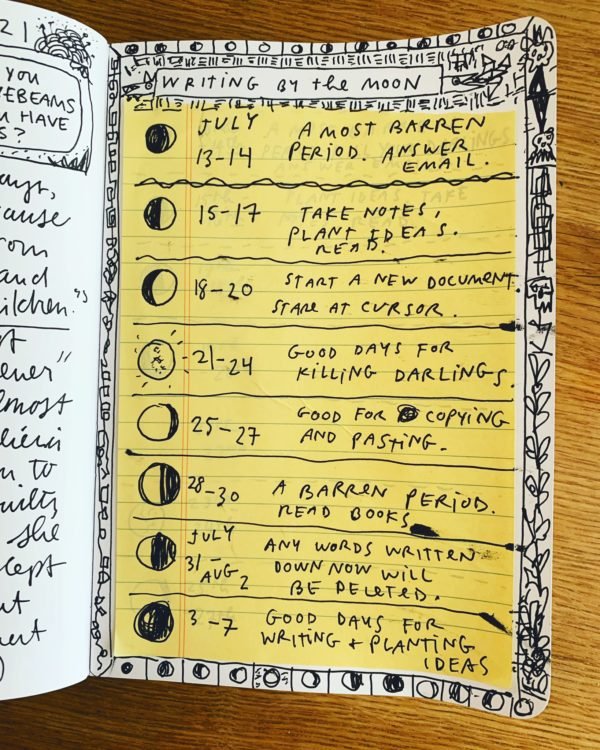 21
YOU
EBEAMS
HAVE
S?
ays,
cause
rom
and
kitchen."
ever"
lmost
to
she
cept
WRITING BY the MOON
JULY
13-14
A MOST BARREN
PERIOD. ANSWER
EMAIL.
15-17
TAKE NOTES,
PLANT IDEAS.
READ.
18-20
START A NEW DOCUMENT.
STARE AT CURSOR.
21-24
GOOD DAYS FOR
KILLING DARLINGS.
25-27
GOOD FOR COPYING
AND PASTING.
28-30
A BARREN PERIOD.
READ BOOKS
JULY
31-
AUG 2
ANY WORDS WRITTEN
DOWN NOW WILL
BE DELETED.
3-7
GOOD DAYS FOR
WRITING + PLANTING
IDEAS